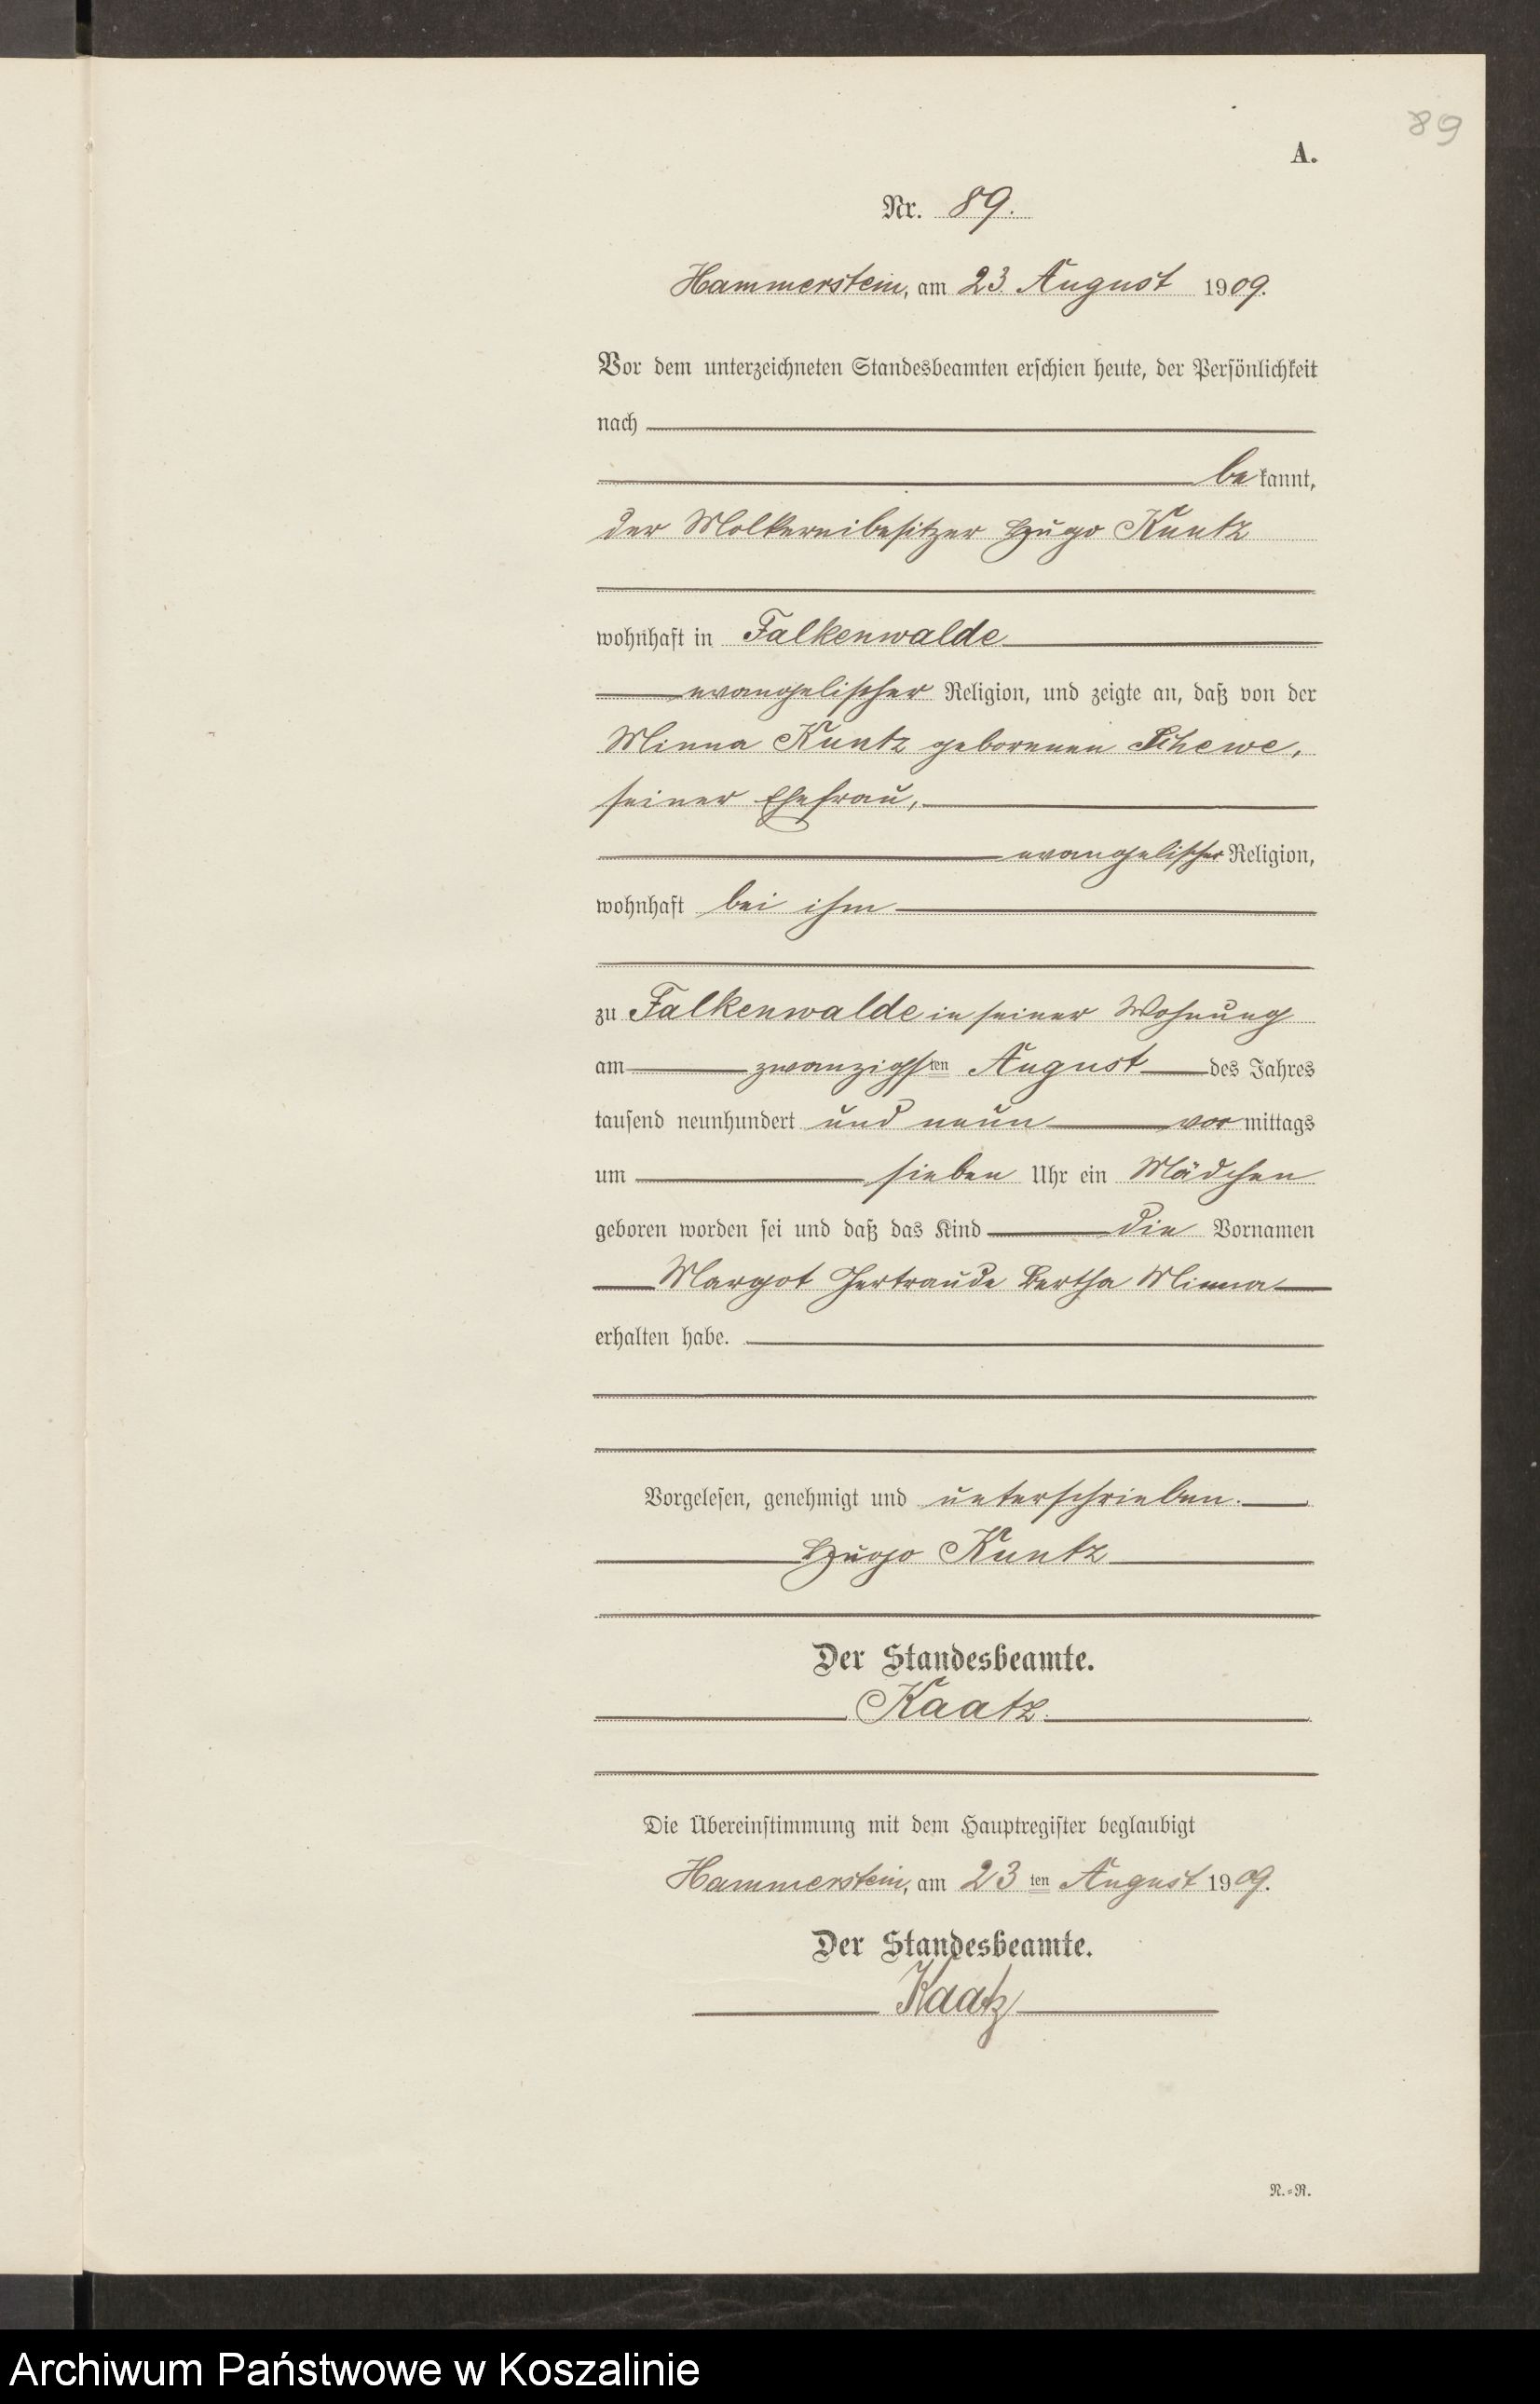 89
A.
Nr. 89.
Hammerstein, am 23. August 1909.
Vor dem unterzeichneten Standesbeamten erschien heute, der Persönlichkeit
nach
bekannt,
der Molkereibesitzer Hugo Kuntz
wohnhaft in Falkenwalde
evangelischer Religion, und zeigte an, daß von der
Minna Kuntz geborenen Schewe,
seiner Ehefrau,
evangelischer Religion,
wohnhaft bei ihm
zu Falkenwalde in seiner Wohnung
am zwanzigsten August des Jahres
tausend neunhundert und neun vormittags
um sieben Uhr ein Mädchen
geboren worden sei und daß das Kind die Vornamen
Margot Gertraude Bertha Minna
erhalten habe.
Vorgelesen, genehmigt und unterschrieben.
Hugo Kuntz
Der Standesbeamte.
Kaatz.
Die Übereinstimmung mit dem Hauptregister beglaubigt
Hammerstein, am 23ten August 1909.
Der Standesbeamte.
Kaatz
N.=R.
Archiwum Państwowe w Koszalinie